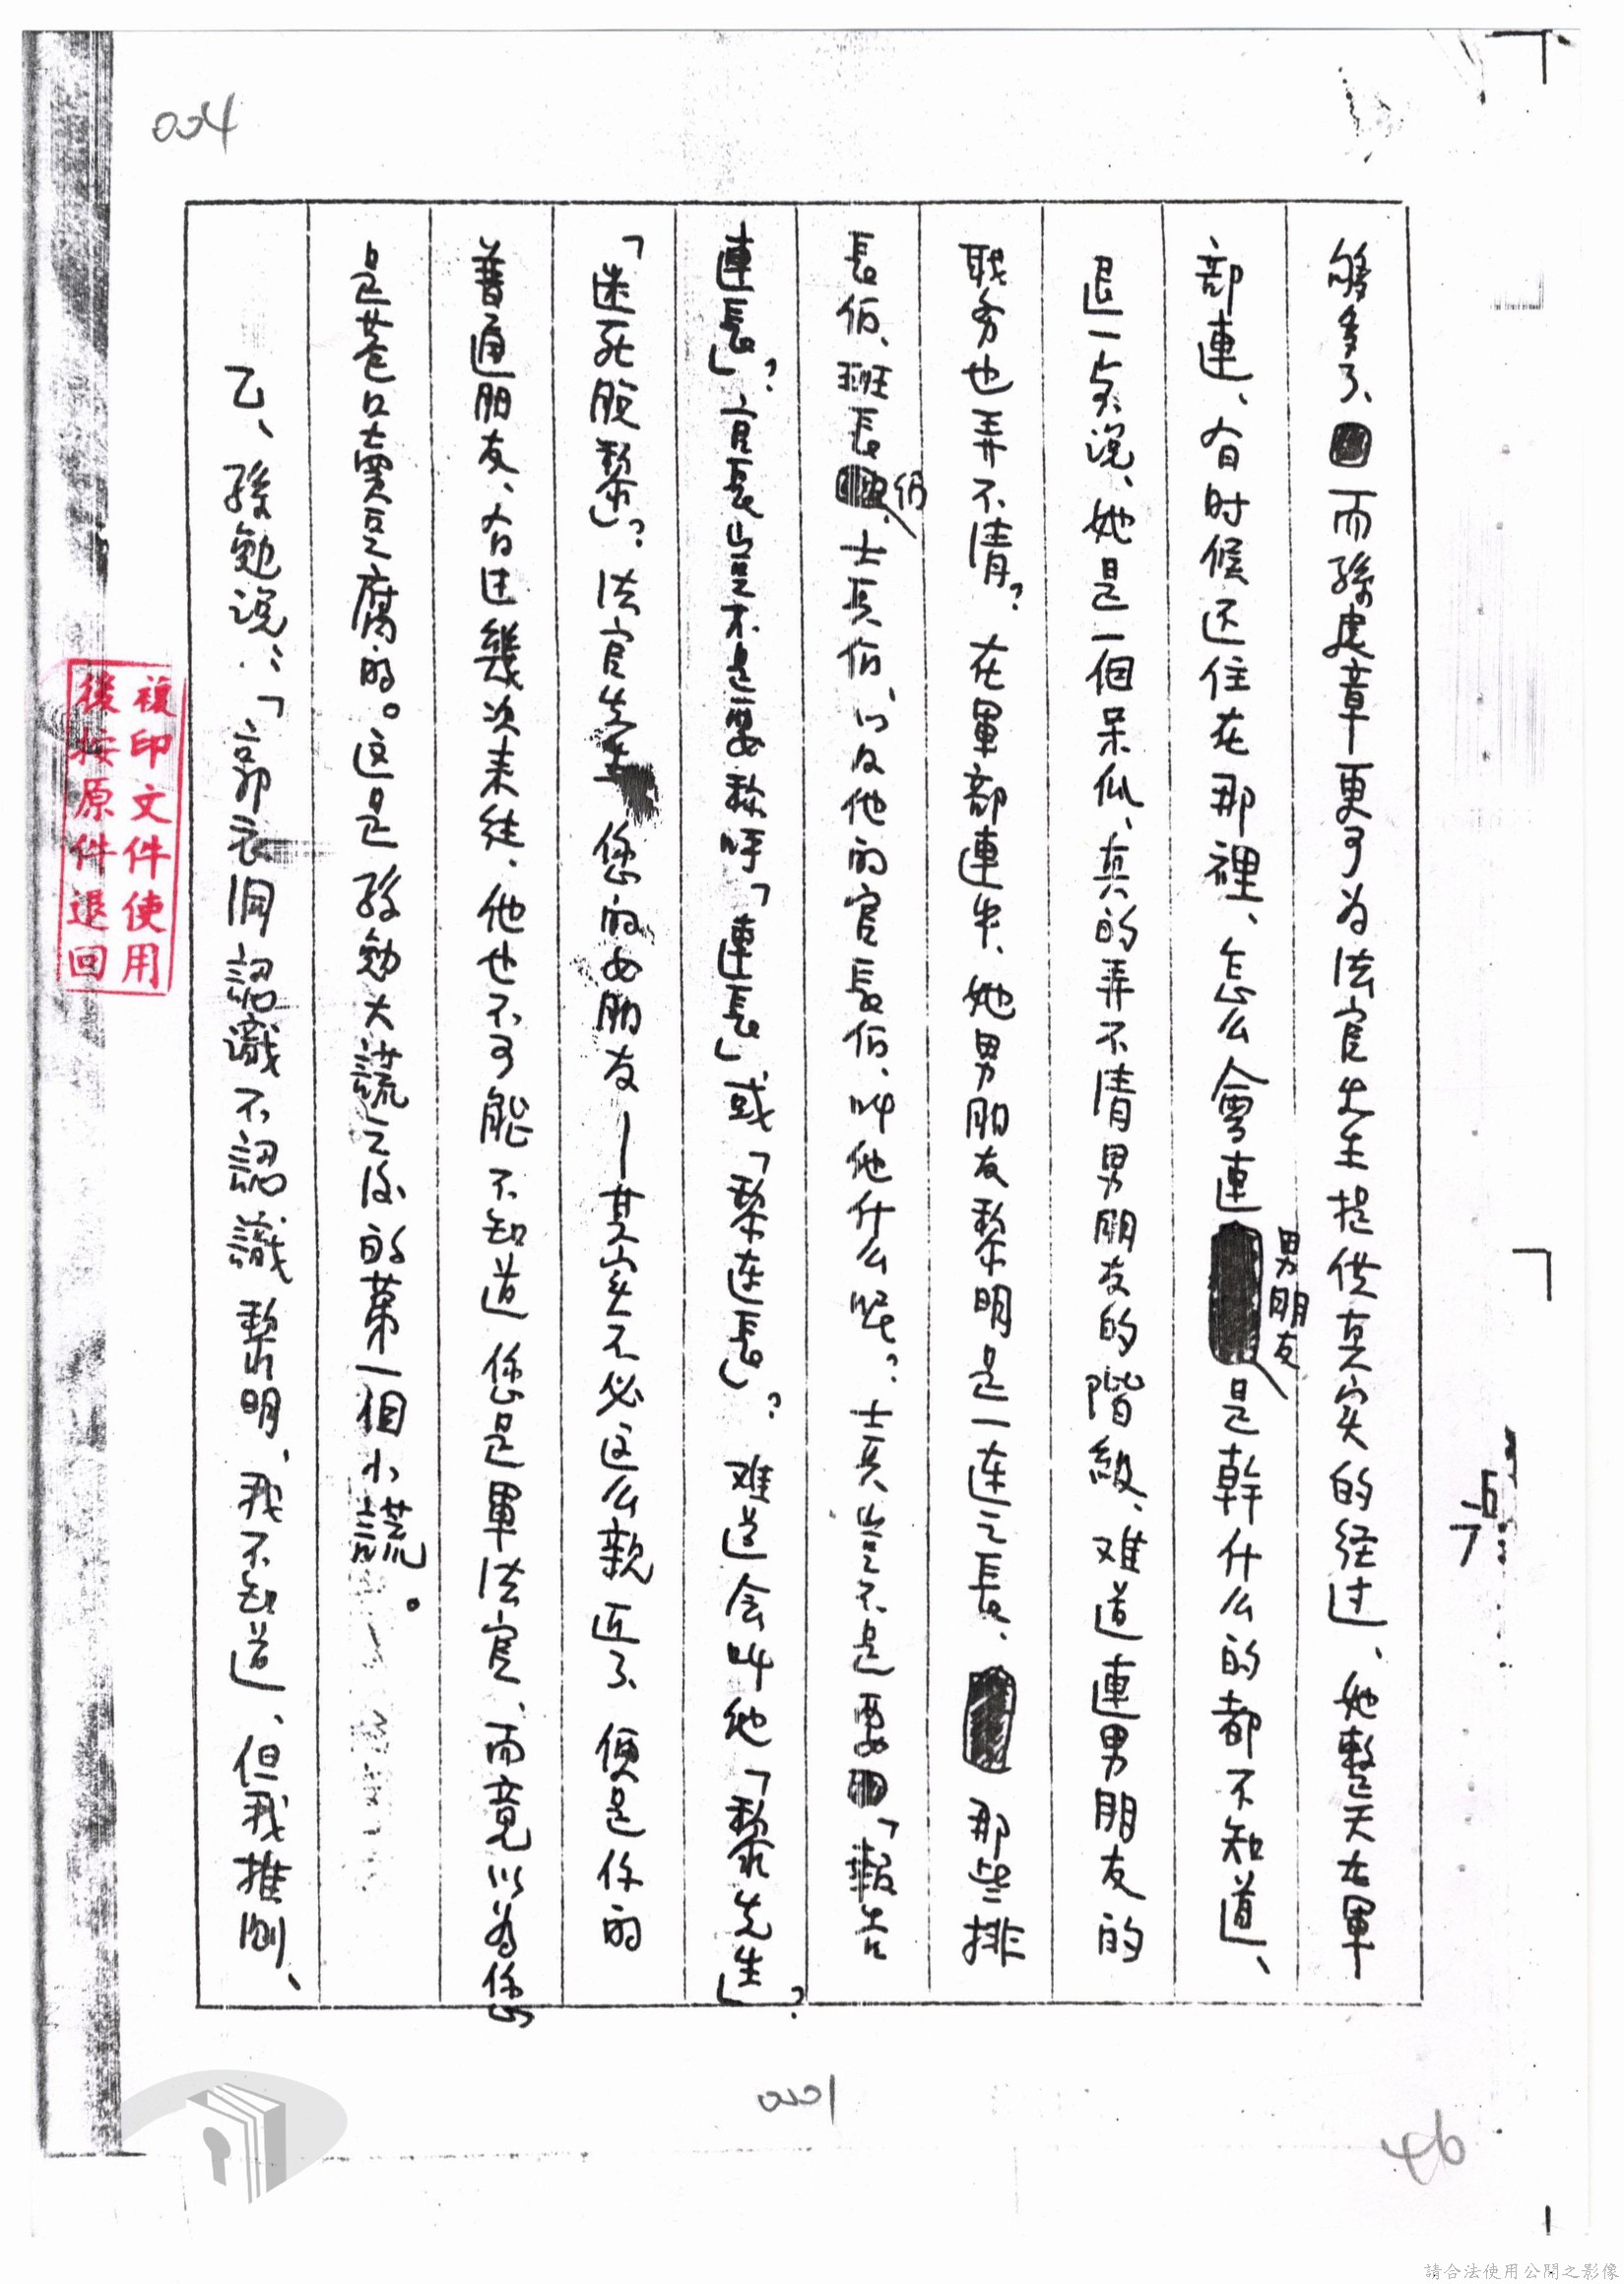 004
够多了、而孫建章更可为法官先生提供真实的经过、她整天在軍
部連、有时候还住在那裡、怎么會連男朋友是幹什么的都不知道、
退一步説、她是一個呆瓜、真的弄不清男朋友的階級、难道連男朋友的
职务也弄不清？在軍部連中、她男朋友黎明是一連之長、那些排
長们、班長们、士兵们、以及他的官長们、叫他什么呢？士兵豈不是要「報告
連長」？官長豈不是要称呼「連長」或「黎連長」？难道会叫他「黎先生」？
「迷死脱黎」？法官先生您的女朋友—其实不必这么親近了、便是你的
普通朋友、有过幾次来往、他也不可能不知道您是軍法官、而竟以为您
是巷口賣豆腐的。这是孫勉大謊之後的第一個小謊。
乙、孫勉説：「郭衣洞認識不認識黎明、我不知道、但我推測、
複印文件使用
後按原件退回
0001
46
請合法使用公開之影像